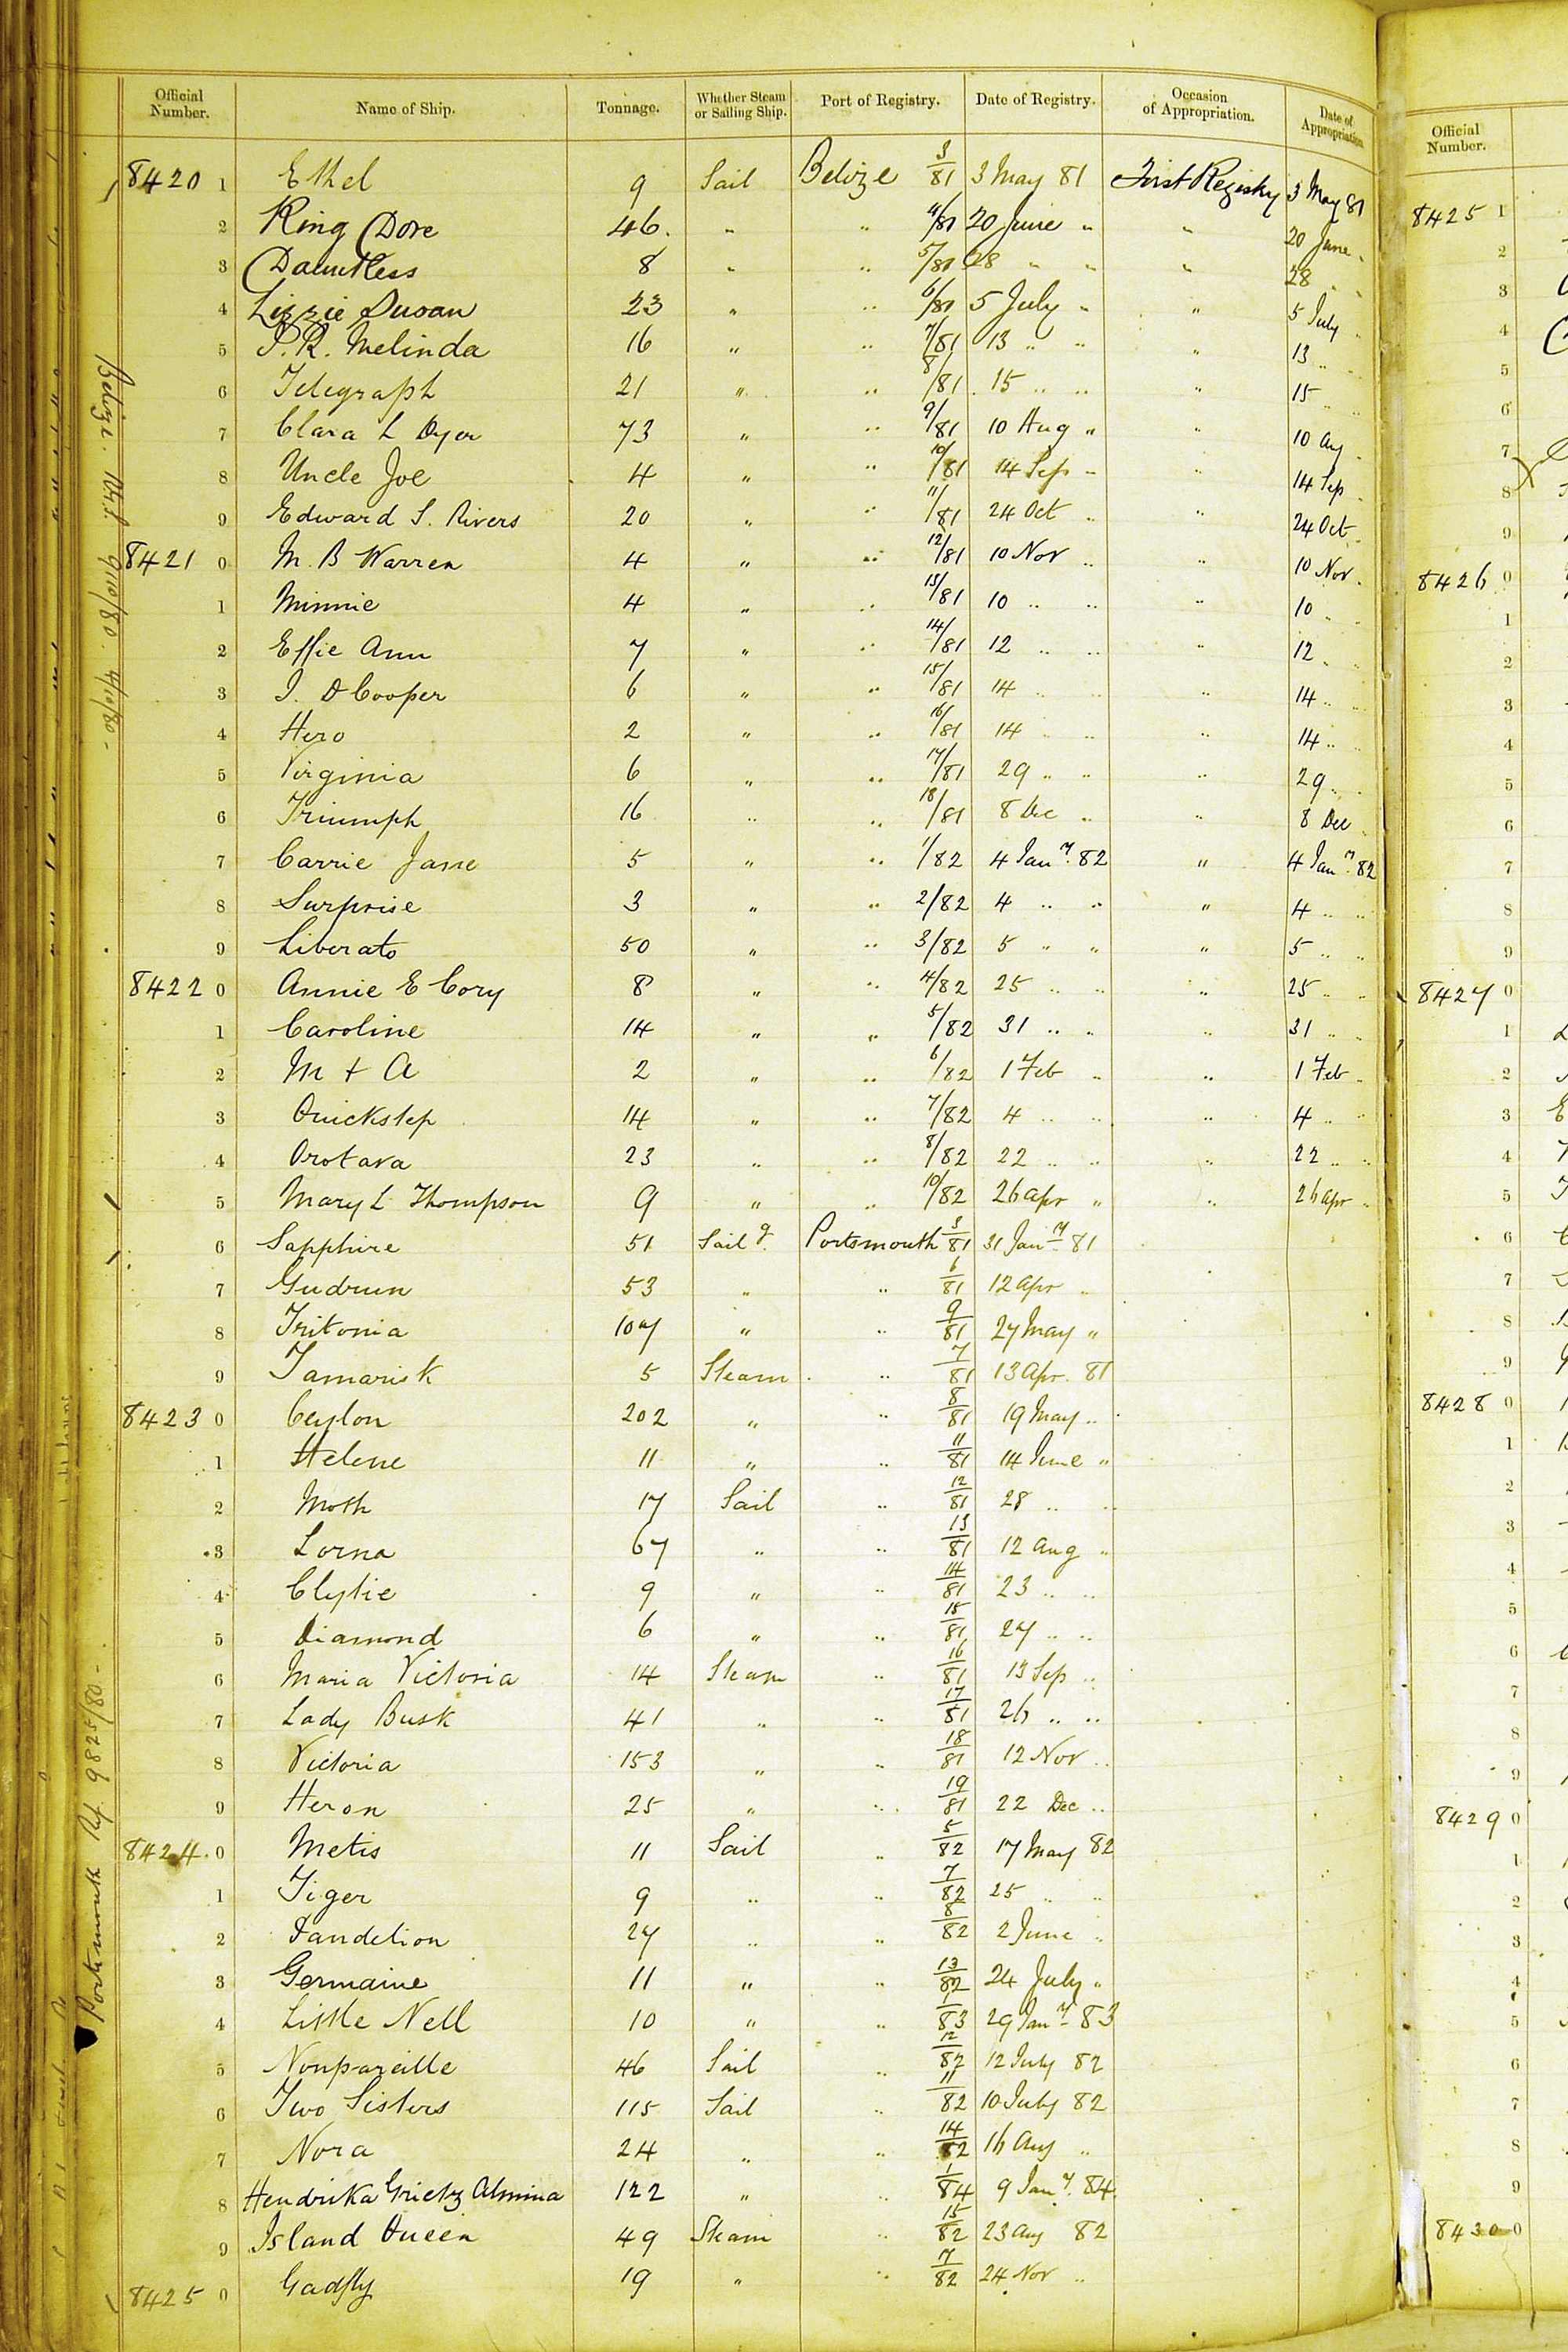 Official Number. Name of Ship. Tonnage. Whether Steam or Sailing Ship. Port of Registry. Date of Registry. Occasion of Appropriation. Date of Appropriation
8420 1 Ethel 9 Sail Belize 3/81 3 May 81 First Registry 3 May 81
2 King Dove 46. " " 4/81 20 June " " 20 June "
3 Dauntless 8 " " 5/81 28 " " " 28 " "
4 Lizzie Susan 23 " " 6/81 5 July " " 5 July "
5 P. R. Melinda 16 " " 7/81 13 " " " 13 " "
6 Telegraph 21 " " 8/81 15 " " " 15 " "
7 Clara L Dyer 73 " " 9/81 10 Aug " " 10 Aug "
8 Uncle Joe 4 " " 10/81 14 Sep " " 14 Sep "
9 Edward S. Rivers 20 " " 11/81 24 Oct " " 24 Oct "
8421 0 M. B Warren 4 " " 12/81 10 Nov " " 10 Nov "
1 Minnie 4 " " 13/81 10 " " " 10 " "
2 Effie Ann 7 " " 14/81 12 " " " 12 " "
3 I. D Cooper 6 " " 15/81 14 " " " 14 " "
4 Hero 2 " " 16/81 14 " " " 14 " "
5 Virginia 6 " " 17/81 29 " " " 29 " "
6 Triumph 16 " " 18/81 8 Dec " " 8 Dec "
7 Carrie Jane 5 " " 1/82 4 Jany. 82 " 4 Jany. 82
8 Surprise 3 " " 2/82 4 " " " 4 " "
9 Liberato 50 " " 3/82 5 " " " 5 " "
8422 0 Annie E Cory 8 " " 4/82 25 " " " 25 " "
1 Caroline 14 " " 5/82 31 " " " 31 " "
2 M + A 2 " " 6/82 1 Feb " " 1 Feb "
3 Quickstep 14 " " 7/82 4 " " " 4 " "
4 Orotava 23 " " 8/82 22 " " " 22 " "
5 Mary L Thompson 9 " " 10/82 26 Apr " " 26 Apr "
6 Sapphire 51 Sailg. Portsmouth 3/81 31 Jany 81
7 Gudrun 53 " " 6/81 12 Apr "
8 Tritonia 107 " " 9/81 27 May "
9 Tamarisk 5 Steam " 7/81 13 Apr. 81
8423 0 Ceylon 202 " " 8/81 19 May "
1 Helene 11 " " 11/81 14 June "
2 Moth 17 Sail " 12/81 28 " "
3 Lorna 67 " " 13/81 12 Aug "
4 Clytie 9 " " 14/81 23 " "
5 Diamond 6 " " 15/81 27 " "
6 Maria Victoria 14 Steam " 16/81 13 Sep "
7 Lady Busk 41 " " 17/81 26 " "
8 Victoria 153 " " 18/81 12 Nov "
9 Heron 25 " " 19/81 22 Dec "
8424 0 Metis 11 Sail " 5/82 17 May 82
1 Tiger 9 " " 7/82 25 " "
2 Dandelion 27 " " 8/82 2 June "
3 Germaine 11 " " 13/82 24 July "
4 Little Nell 10 " " 1/83 29 Jany 83
5 Nonpareille 46 Sail " 12/82 12 July 82
6 Two Sisters 115 Sail " 11/82 10 July 82
7 Nora 24 " " 14/82 16 Aug "
8 Hendrika Almina 122 " " 1/84 9 Jany. 84
9 Island Queen 49 Steam " 15/82 23 Aug 82
8425 0 Gadfly 19 " " 7/82 24 Nov "
Belize. Ref 9110/80.
Portsmouth Rf. 9825/80-
Official Number.
8425 1
2
3
4
5
6
7
8
9
8426 0
1
2
3
4
5
6
7
8
9
8427 0
1
2
3
4
5
6
7
8
9
8428 0
1
2
3
4
5
6
7
8
9
8429 0
1
2
3
4
5
6
7
8
9
8430 0